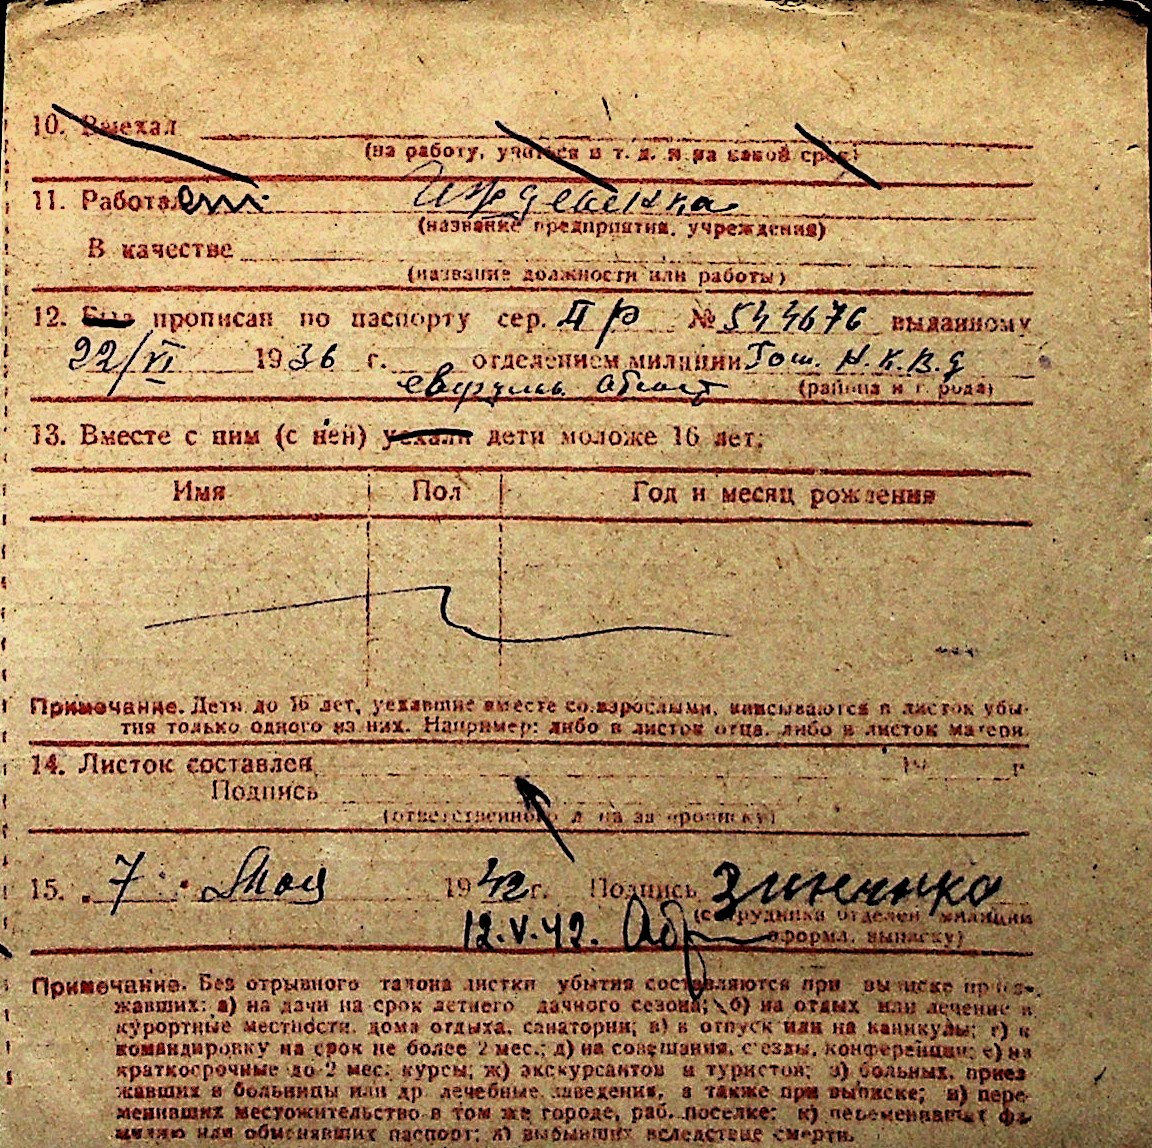 10. Выехал
(на работу, учиться и т. д. и на какой срок)
11. Работает Иждевенка
(название предприятия, учреждения)
В качестве
(название должности или работы)
12. Был прописан по паспорту сер. II Р № 544676 выданному
22/VI 1936 г. отделением милиции Гош. Н.К.В.Д
(района и города)
13. Вместе с ним (с ней) уехали дети моложе 16 лет:
Имя Пол Год и месяц рождения
Примечание. Дети до 16 лет, уехавшие вместе со взрослыми, вписываются в листок убы-
тия только одного из них. Например: либо в листок отца, либо в листок матери
14. Листок составлен 19 г
Подпись
(ответственного лица за прописку)
15. 7 Мая 1942 г. Подпись Зинченко
(сотрудника отделен милиции
12.V.42. оформл. выписку)
Примечание. Без отрывного талона листки убытия составляются при выписке приез-
жавших: а) на дачи на срок летнего дачного сезона; б) на отдых или лечение в
курортные местности, дома отдыха, санатории; в) в отпуск или на каникулы; г) в
командировку на срок не более 2 мес.; д) на совещания, с'езды, конференции; е) на
краткосрочные до 2 мес. курсы; ж) экскурсантов и туристов; з) больных, приез
жавших в больницы или др лечебные заведения, а также при выписке; и) пере-
менивших местожительство в том же городе, раб. поселке; к) переменивших фа-
милию или обменявших паспорт; л) выбывших вследствие смерти.